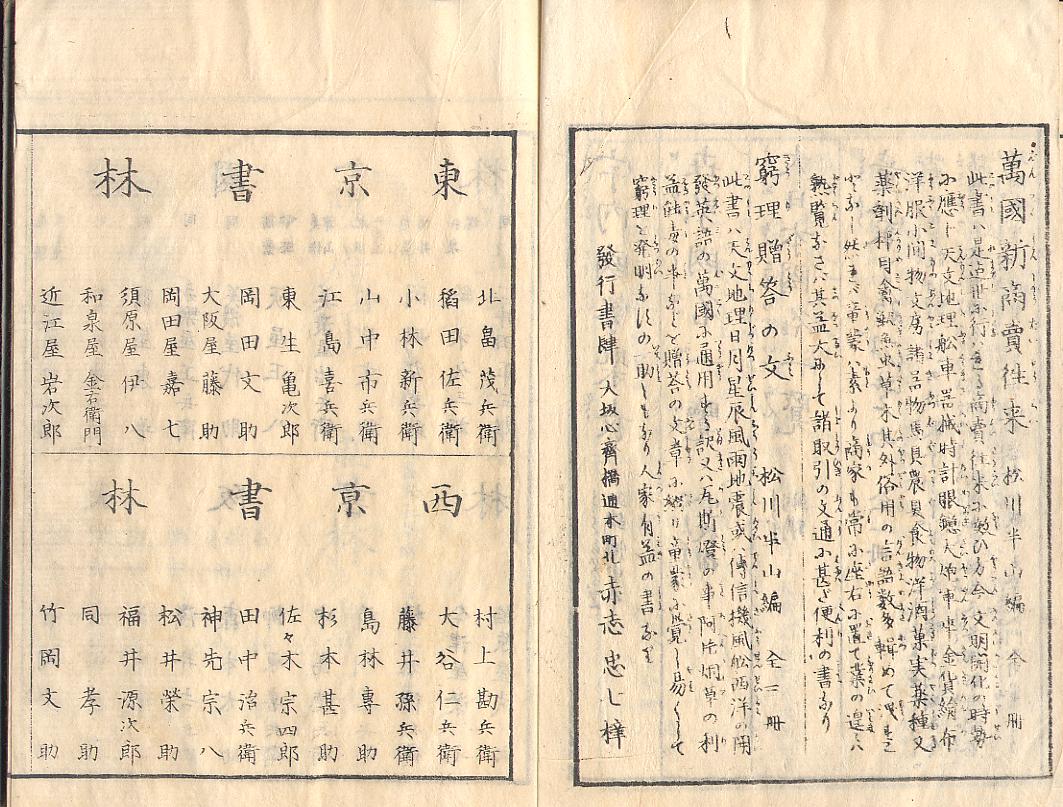 萬國新商賣往来 松川半山編 全一冊
此書ハ是迠世に行ハるゝ商賣往来に敩ひ方今文明開化の時勢
に應じ天文地理舩車器械時計眼鏡大炮車傘金貨繪布
洋服小間物文房諸器物馬具農具食物洋酒菓実薬種又
薬剤 禽獣魚虫草木其外俗用の言語数多輯めて
童蒙ハ素より商家も常に座右に置て業の遑にハ
熟覧なさバ其益大にして諸取引の文通に甚だ便利の書なり
窮理贈答の文 松川半山編 全二冊
此書ハ天文地理日月星辰風雨地震或ハ傳信機風舩西洋の開
發英語の萬國に通用する訳又ハ瓦斯燈の事阿片烟草の利
益餘毒の事などを贈答の文章に綴り童蒙に覚し易くして
窮理を發明なすの助しなり人家有益の書なり
發行書肆 大坂心齊橋通本町北 赤志忠七梓
東京書林
北畠茂兵衛
稲田佐兵衛
小林新兵衛
山中市兵衛
江島喜兵衛
東生亀次郎
岡田文助
大阪屋藤助
岡田屋嘉七
須原屋伊八
和泉屋金右衛門
近江屋岩次郎
西京書林
村上勘兵衛
大谷仁兵衛
藤井孫兵衛
島林專助
杉本甚助
佐々木宗四郎
田中治兵衛
神先宗八
松井榮助
福井源次郎
同孝助
竹岡文助